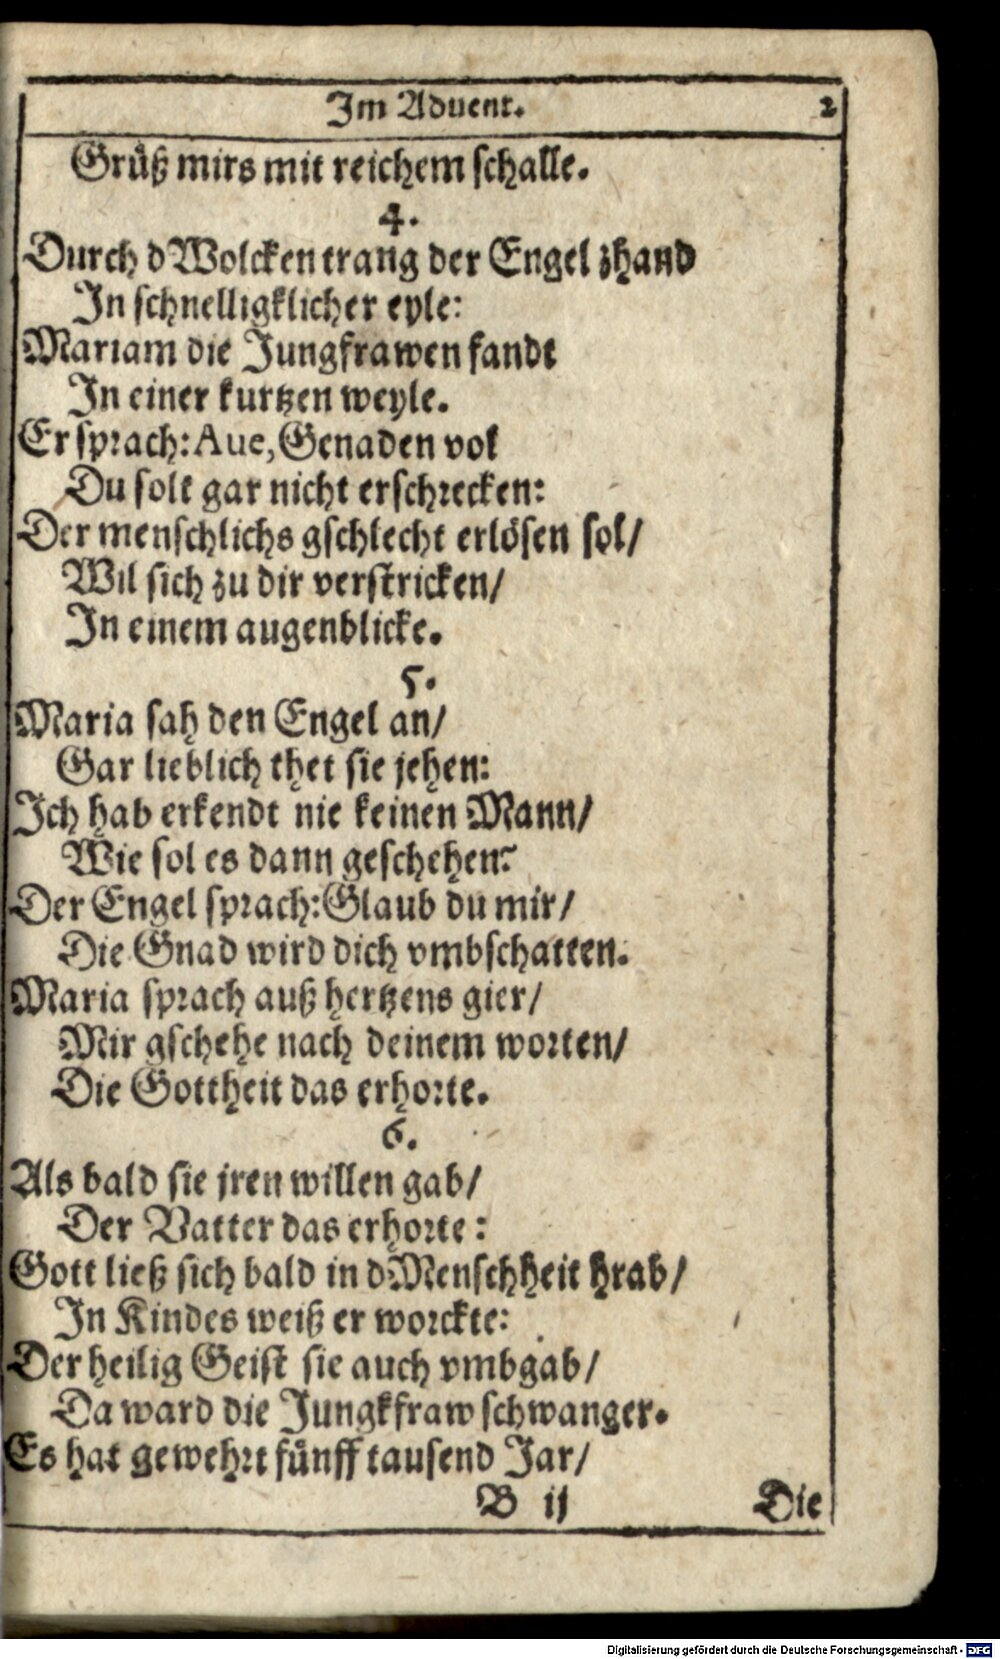 Im Aduent. 2
Grüß mirs mit reichem schalle.
4.
Durch d Wolcken trang der Engel zhand
In schnelligklicher eyle:
Mariam die Jungfrawen fandt
In einer kurtzen weyle.
Er sprach: Aue, Genaden vol
Du solt gar nicht erschrecken:
Der menschlichs gschlecht erlösen sol/
Wil sich zu dir verstricken/
In einem augenblicke.
5.
Maria sah den Engel an/
Gar lieblich thet sie jehen:
Ich hab erkendt nie keinen Mann/
Wie sol es dann geschehen?
Der Engel sprach: Glaub du mir/
Die Gnad wird dich vmbschatten.
Maria sprach auß hertzens gier/
Mir gschehe nach deinem worten/
Die Gottheit das erhorte.
6.
Als bald sie jren willen gab/
Der Vatter das erhorte:
Gott ließ sich bald in dMenschheit hrab/
In Kindes weiß er worckte:
Der heilig Geist sie auch vmbgab/
Da ward die Jungkfraw schwanger.
Es hat gewehrt fünff tausend Jar/
B ij Die
Digitalisierung gefördert durch die Deutsche Forschungsgemeinschaft - DFG